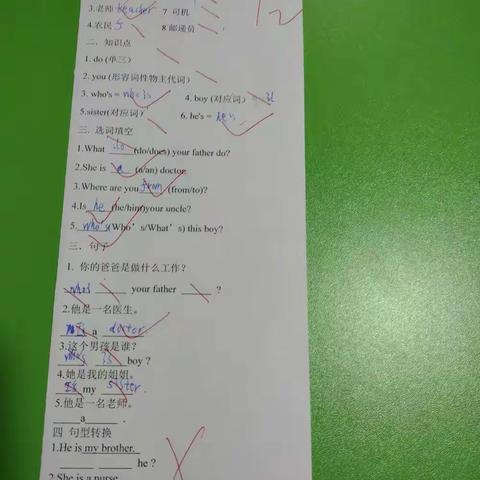 3.老师 teacher 7 司机
4.农民 8 邮递员
12
二. 知识点
1. do (单三)
2. you (形容词性物主代词)
3. who's = who is 4. boy (对应词)
5.sister(对应词) 6. he's = he is
三. 选词填空
1.What do (do/does) your father do?
2.She is a (a/an) doctor.
3.Where are you from (from/to)?
4.Is he (he/him)your uncle?
5. who's (Who's/What's) this boy?
三. 句子
1. 你的爸爸是做什么工作?
who's ______ your father ______ ?
2.他是一名医生。
a doctor
3.这个男孩是谁?
who's is boy ?
4.她是我的姐姐。
my sister.
5.他是一名老师。
______a ______ .
四 句型转换
1.He is my brother.
______ ______ he ?
2.She is a nurse.